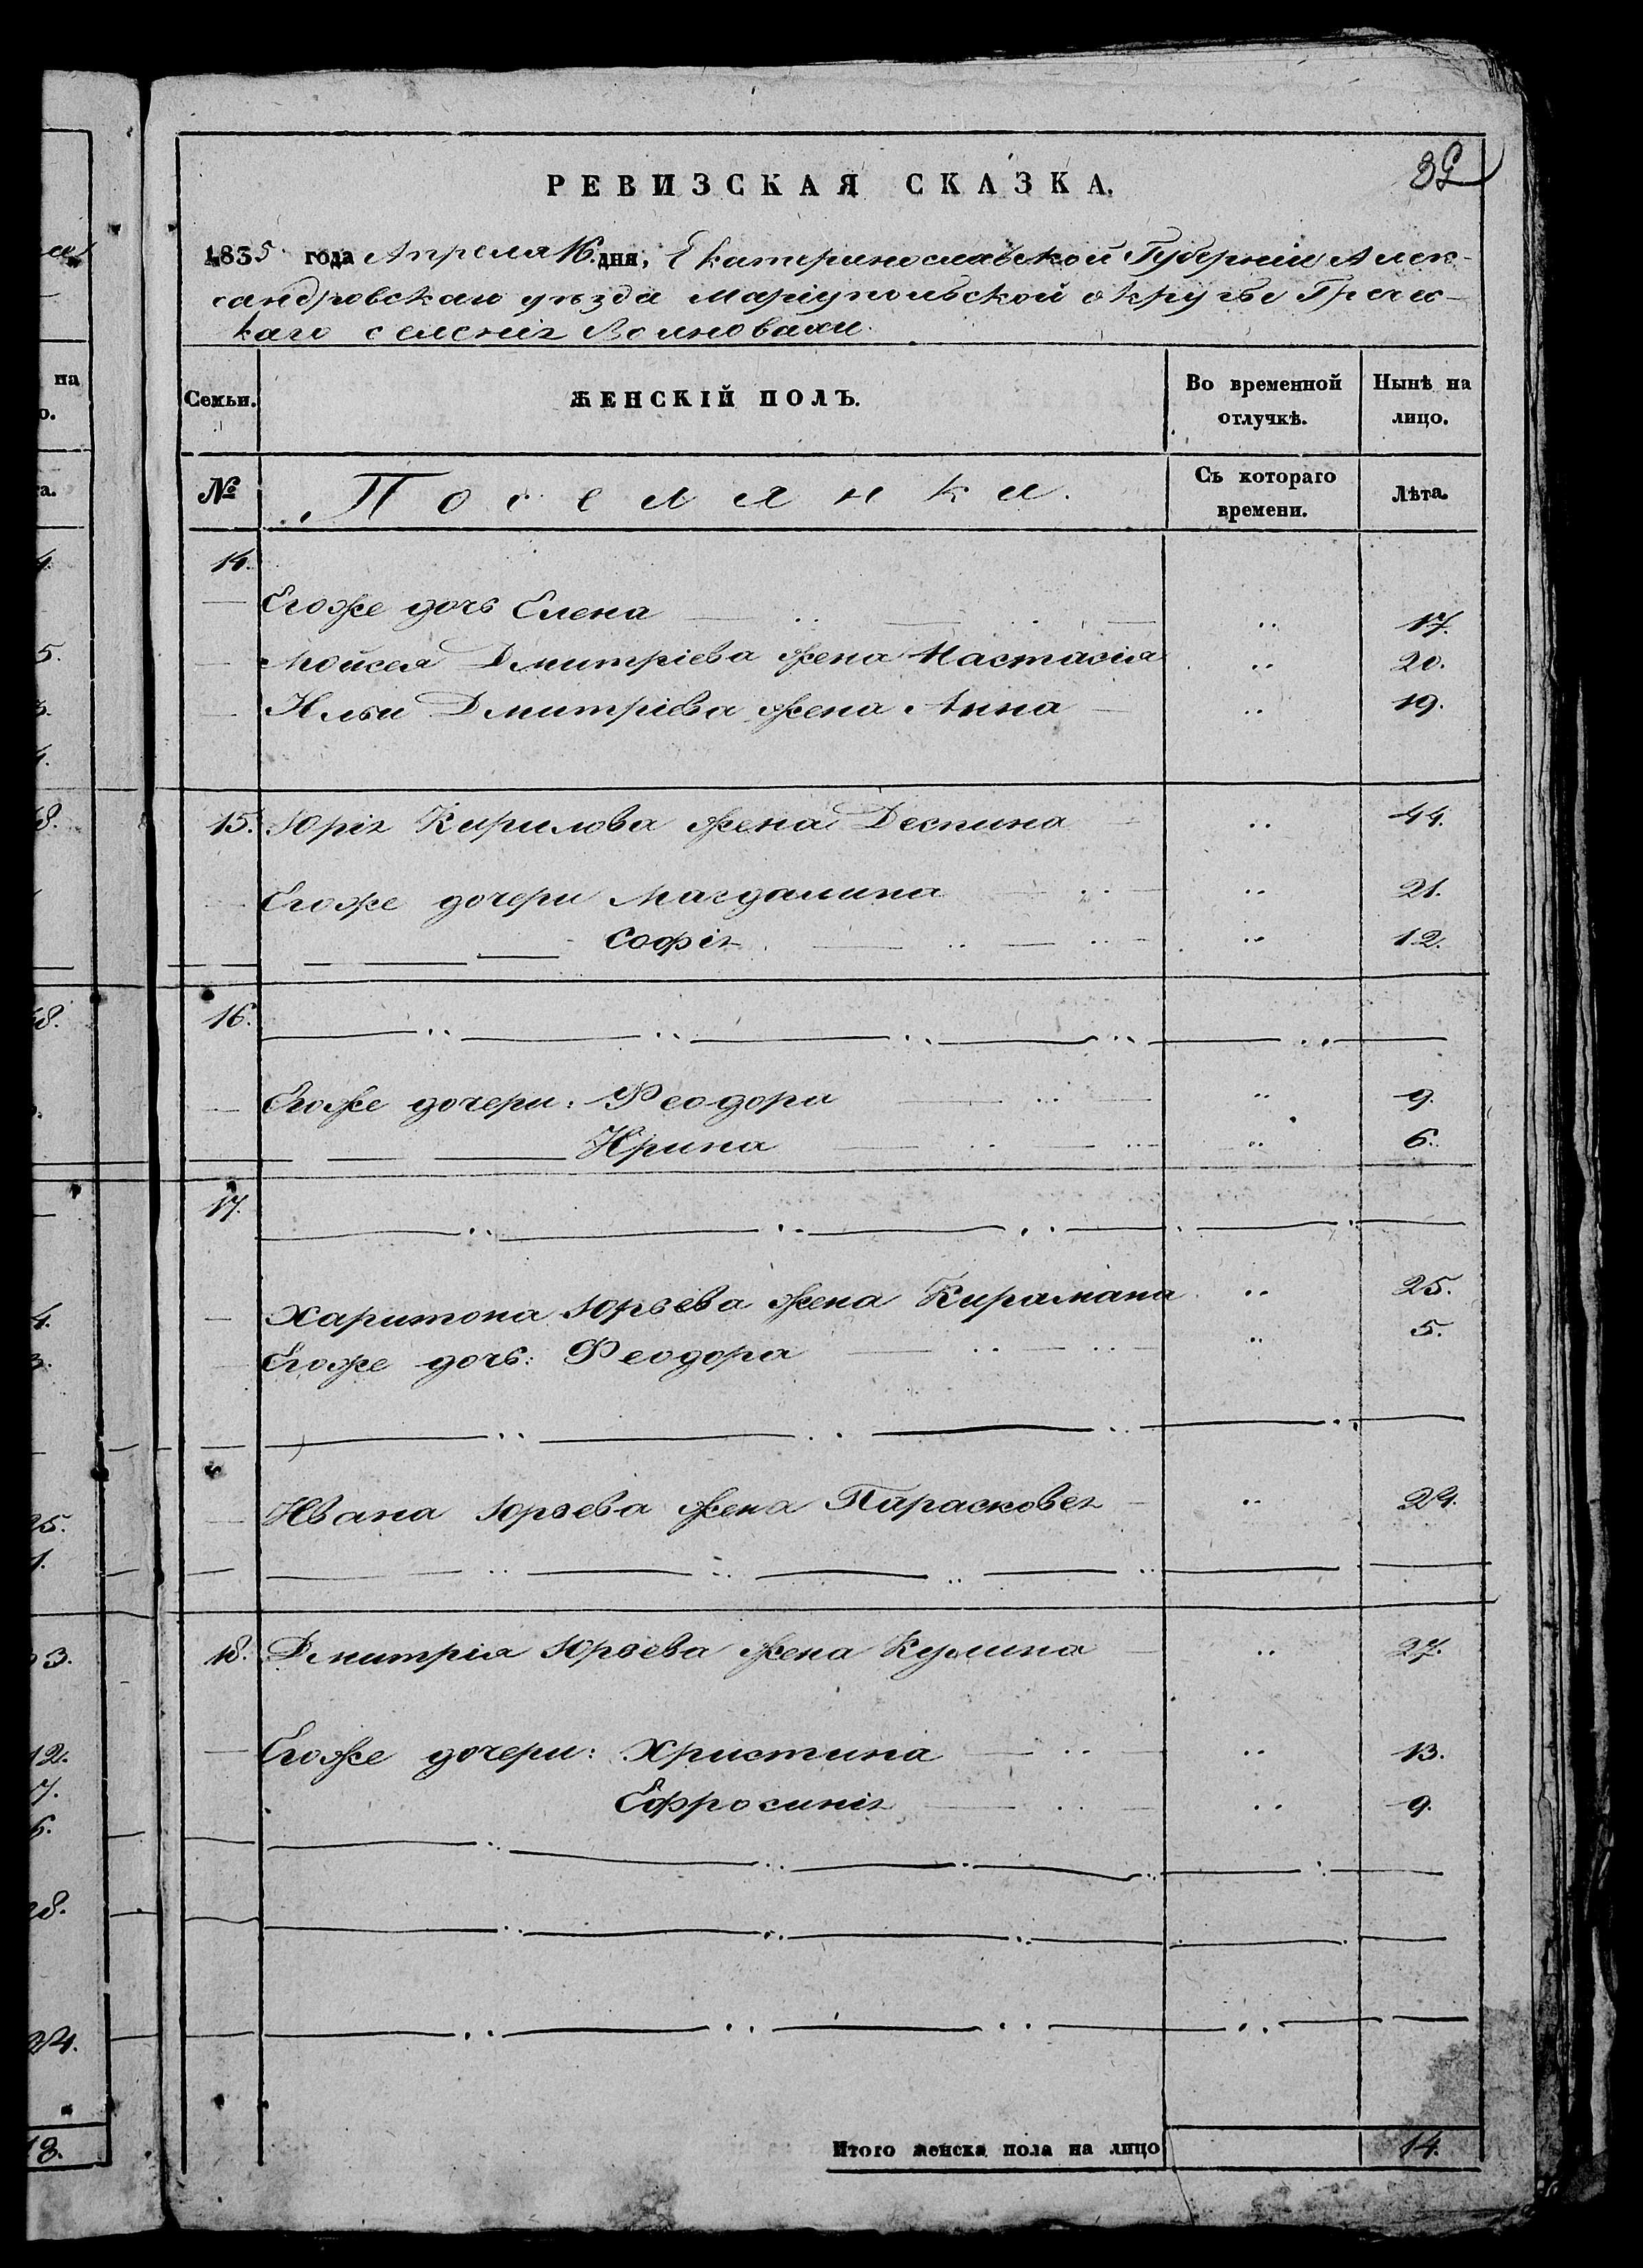 39
РЕВИЗСКАЯ СКАЗКА.
1835 года Апреля 16 дня, Екатеринославской Губерніи Алек-
сандровскаго уезда Маріупольской округе Гречес-
каго селенія Волновахи.
Семьи. ЖЕНСКІЙ ПОЛЪ. Во временной отлучкѣ. Нынѣ на лицо.
№ Поселянки. Съ котораго времени. Лѣта.
14.
Егоже дочь Елена 17.
Мойсея Дмитріева жена Настасія 20.
Ильи Дмитріева жена Анна 19.
15. Юрія Кирилова жена Деспина 44.
Егоже дочери Магдалина 21.
Софія 12.
16.
Егоже дочери: Феодора 9.
Ирина 6.
17.
Харитона Юрьева жена Кирамана 25.
Егоже дочь: Феодора 5.
Ивана Юрьева жена Парасковея 24.
18. Дмитрія Юрьева жена Кулина 27.
Егоже дочери: Христина 13.
Ефросинія 9.
Итого женска пола на лицо 14.